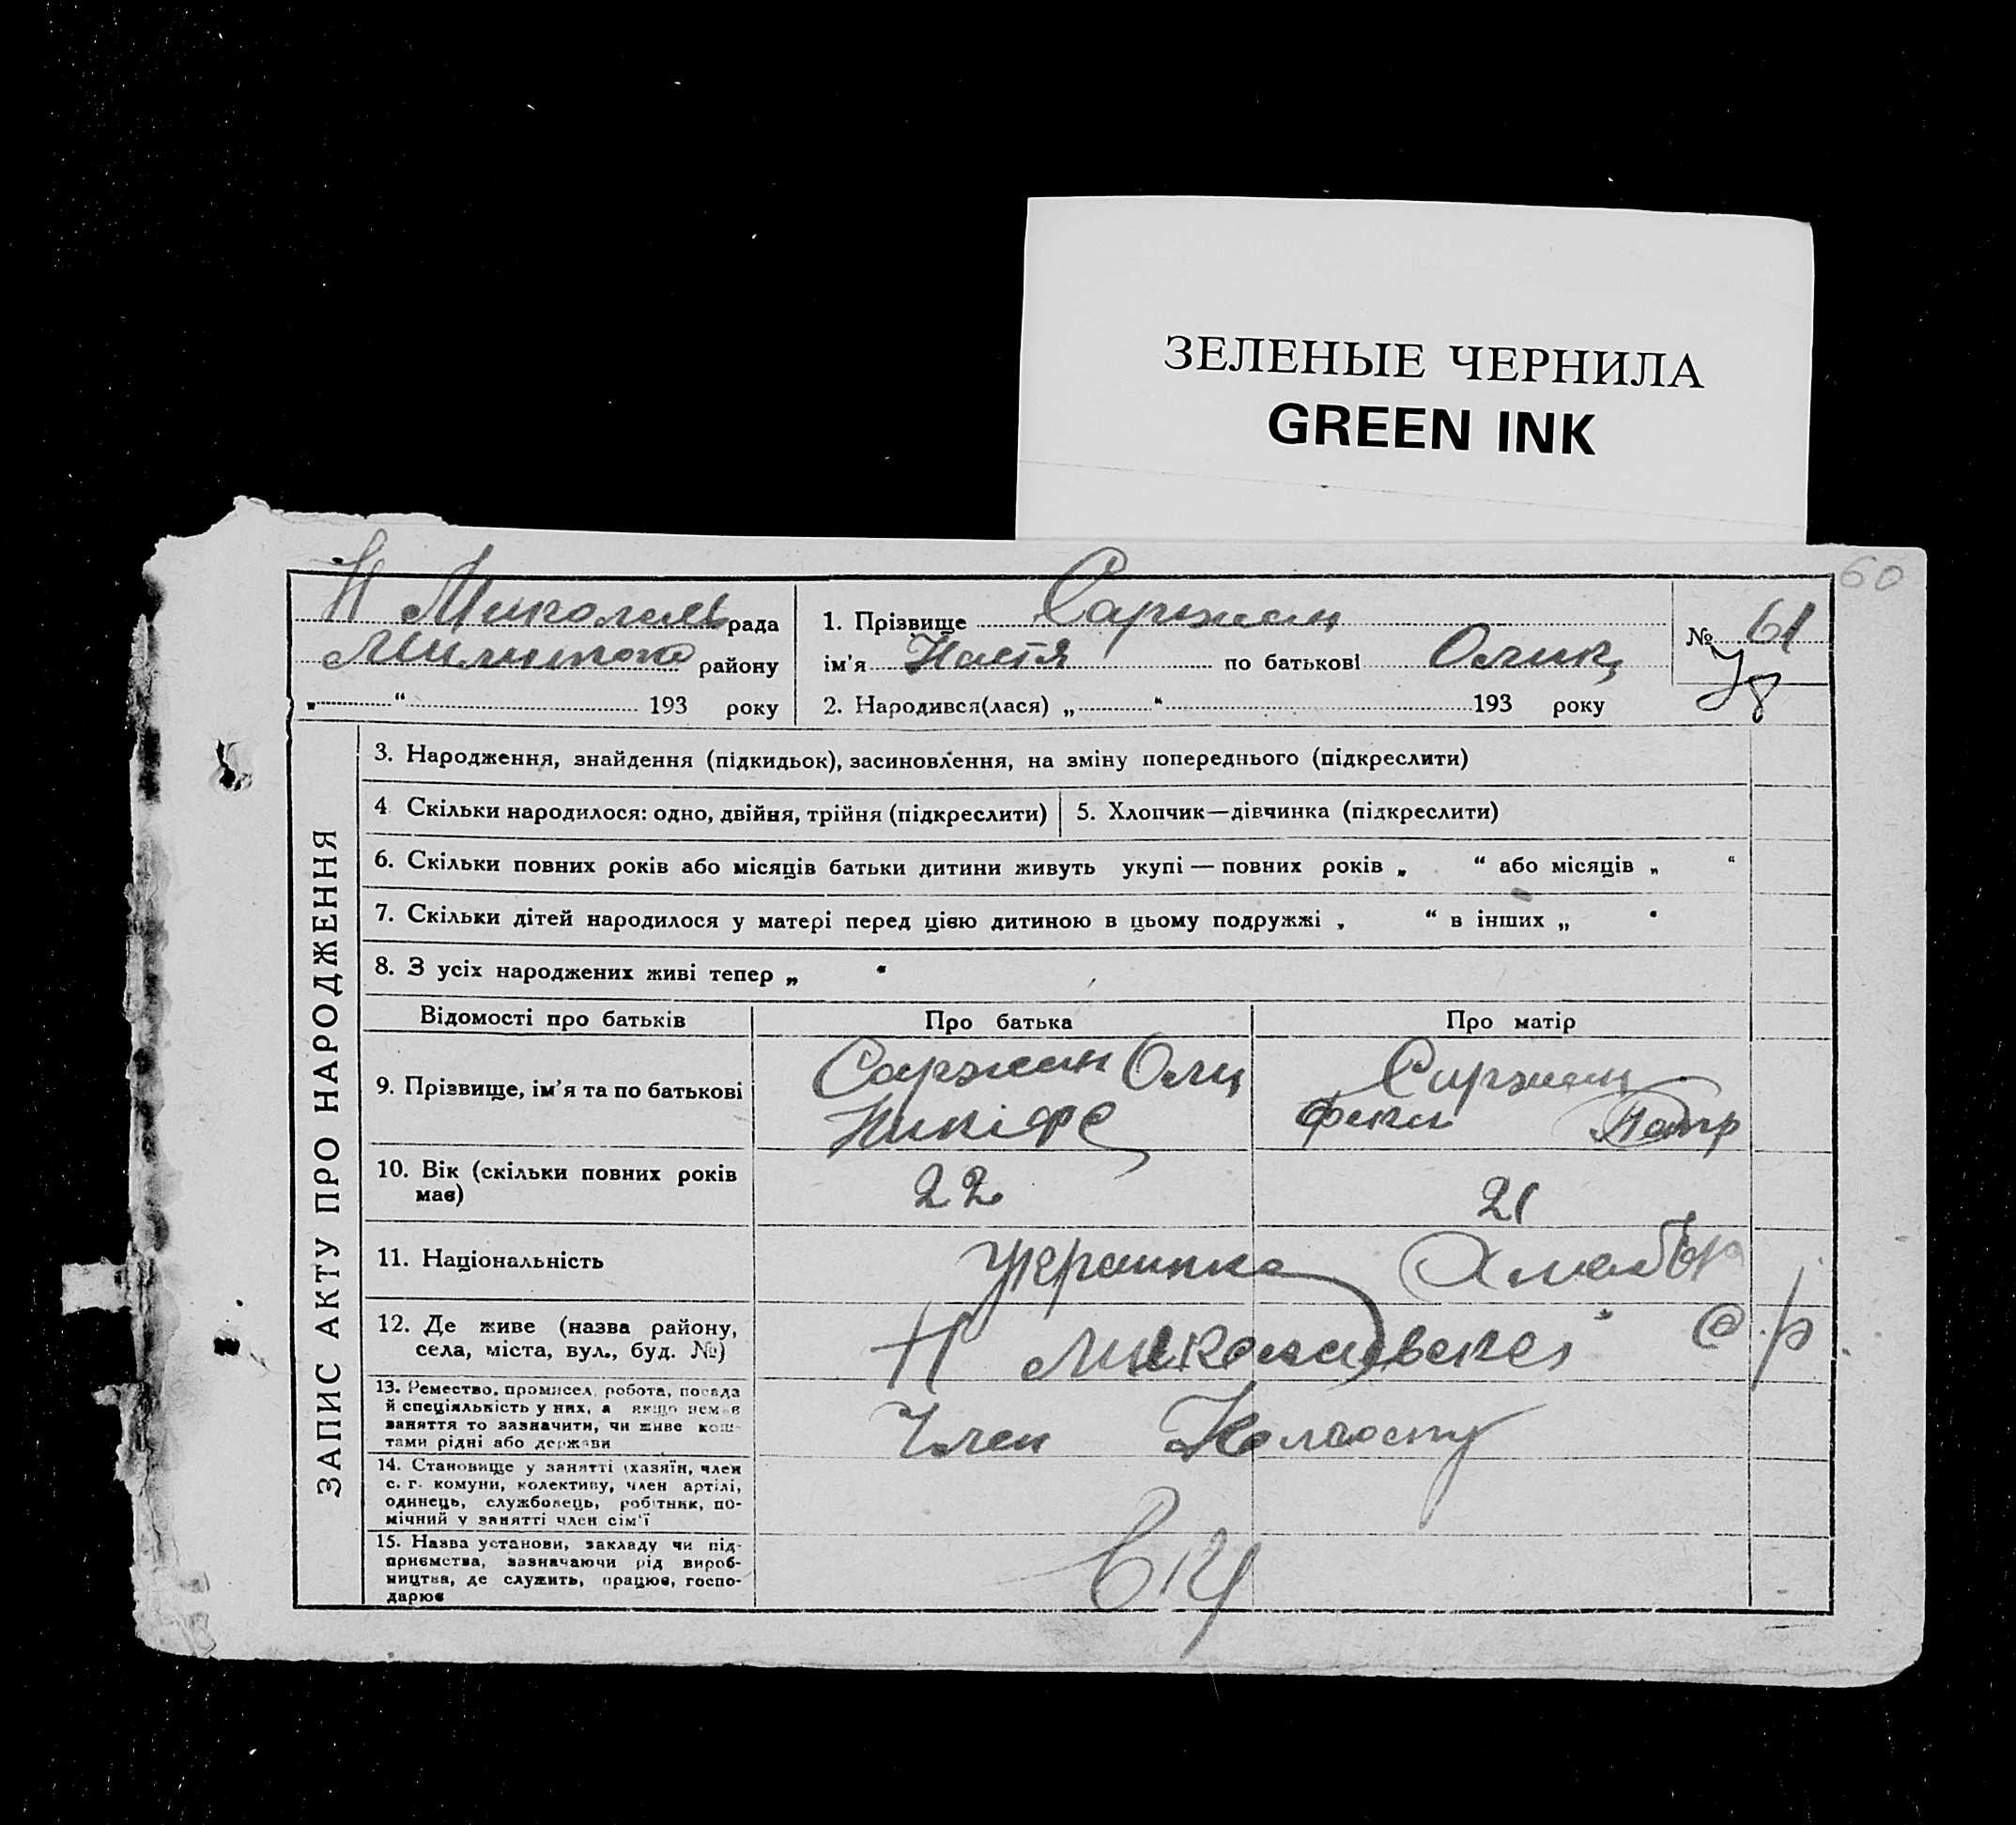 ЗЕЛЕНЫЕ ЧЕРНИЛА
GREEN INK
60
Н Миколаїв рада
району
„ “ 193 року
1. Прізвище Саржан
ім'я Настя по батькові
2. Народився(лася) „ “ 193 року
№ 61
ЗАПИС АКТУ ПРО НАРОДЖЕННЯ
3. Народження, знайдення (підкидьок), засиновлення, на зміну попереднього (підкреслити)
4. Скільки народилося: одно, двійня, трійня (підкреслити)
5. Хлопчик—дівчинка (підкреслити)
6. Скільки повних років або місяців батьки дитини живуть укупі — повних років „ “ або місяців „ “
7. Скільки дітей народилося у матері перед цією дитиною в цьому подружжі „ “ в інших „ “
8. З усіх народжених живі тепер „ “
Відомості про батьків
Про батька
Про матір
9. Прізвище, ім'я та по батькові
Саржан
Никіф
Саржан
Петр
10. Вік (скільки повних років має)
22
21
11. Національність
12. Де живе (назва району,
села, міста, вул., буд. №)
Н
13. Ремество, промисел, робота, посада
й спеціяльність у них, а якщо немає
заняття то зазначити, чи живе кош-
тами рідні або держави
Член Колгоспу
14. Становище у занятті (хазяїн, член
с. г. комуни, колективу, член артілі,
одинець, службовець, робітник, по-
мічний у занятті член сім'ї
15. Назва установи, закладу чи під-
приємства, зазначаючи рід вироб-
ництва, де служить, працює, госпо-
дарює